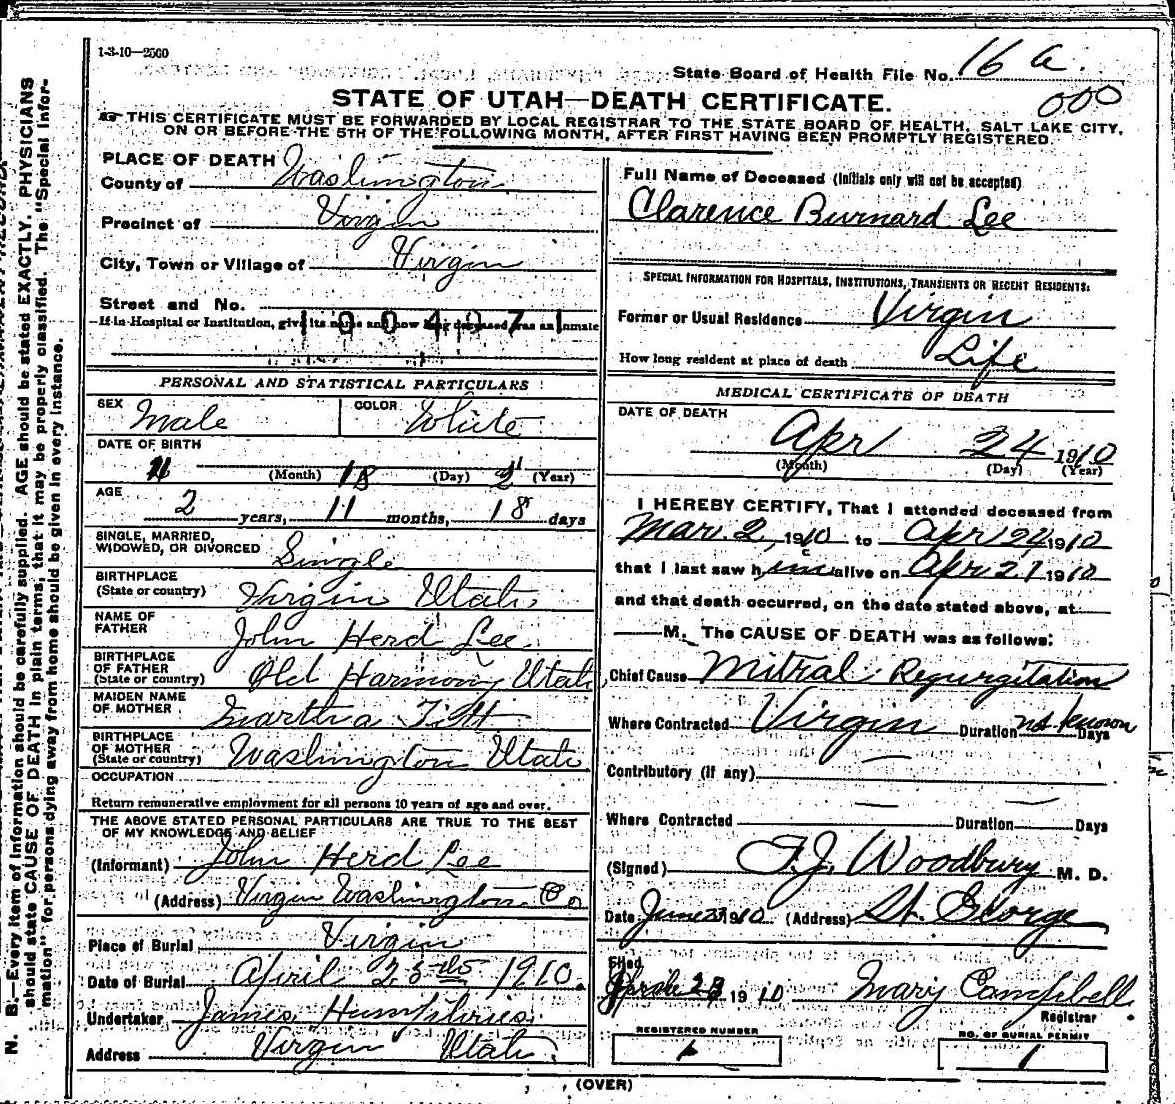 1-3-10—2500
State Board of Health File No. 16 a.
000
STATE OF UTAH—DEATH CERTIFICATE.
THIS CERTIFICATE MUST BE FORWARDED BY LOCAL REGISTRAR TO THE STATE BOARD OF HEALTH, SALT LAKE CITY,
ON OR BEFORE THE 5TH OF THE FOLLOWING MONTH, AFTER FIRST HAVING BEEN PROMPTLY REGISTERED.
PLACE OF DEATH
County of Washington
Precinct of Virgin
City, Town or Village of Virgin
Street and No.
If in Hospital or Institution, give its name and how long deceased was an Inmate
PERSONAL AND STATISTICAL PARTICULARS
SEX Male COLOR White
DATE OF BIRTH
(Month) 18 (Day) (Year)
AGE
2 years, 11 months, 18 days
SINGLE, MARRIED,
WIDOWED, OR DIVORCED Single
BIRTHPLACE
(State or country) Virgin Utah
NAME OF
FATHER John Herd Lee
BIRTHPLACE
OF FATHER
(State or country) Old Harmony Utah
MAIDEN NAME
OF MOTHER Martha
BIRTHPLACE
OF MOTHER
(State or country) Washington Utah
OCCUPATION
Return remunerative employment for all persons 10 years of age and over.
THE ABOVE STATED PERSONAL PARTICULARS ARE TRUE TO THE BEST
OF MY KNOWLEDGE AND BELIEF
(Informant) John Herd Lee
(Address) Virgin Washington Co
Place of Burial Virgin
Date of Burial April 25th 1910.
Undertaker James Humphries
Address Virgin Utah.
Full Name of Deceased (Initials only will not be accepted)
Clarence Burnard Lee
SPECIAL INFORMATION FOR HOSPITALS, INSTITUTIONS, TRANSIENTS OR RECENT RESIDENTS:
Former or Usual Residence Virgin
How long resident at place of death Life
MEDICAL CERTIFICATE OF DEATH
DATE OF DEATH
Apr 24 1910
(Month) (Day) (Year)
I HEREBY CERTIFY, That I attended deceased from
Mar. 2, 1910 to Apr 24 1910
that I last saw him alive on Apr 21 1910
and that death occurred, on the date stated above, at
M. The CAUSE OF DEATH was as follows:
Chief Cause Mitral Regurgitation
Where Contracted Virgin Duration not known Days
Contributory (if any)
Where Contracted Duration Days
(Signed) F.J. Woodbury M. D.
Date June 1910 (Address) St. George
Filed
1910 Mary Campbell
Registrar
REGISTERED NUMBER
NO. OF BURIAL PERMIT
1
1
(OVER)
N. B.—Every item of information should be carefully supplied. AGE should be stated EXACTLY. PHYSICIANS
should state CAUSE OF DEATH in plain terms, that it may be properly classified. The "Special Infor-
mation" for persons dying away from home should be given in every instance.